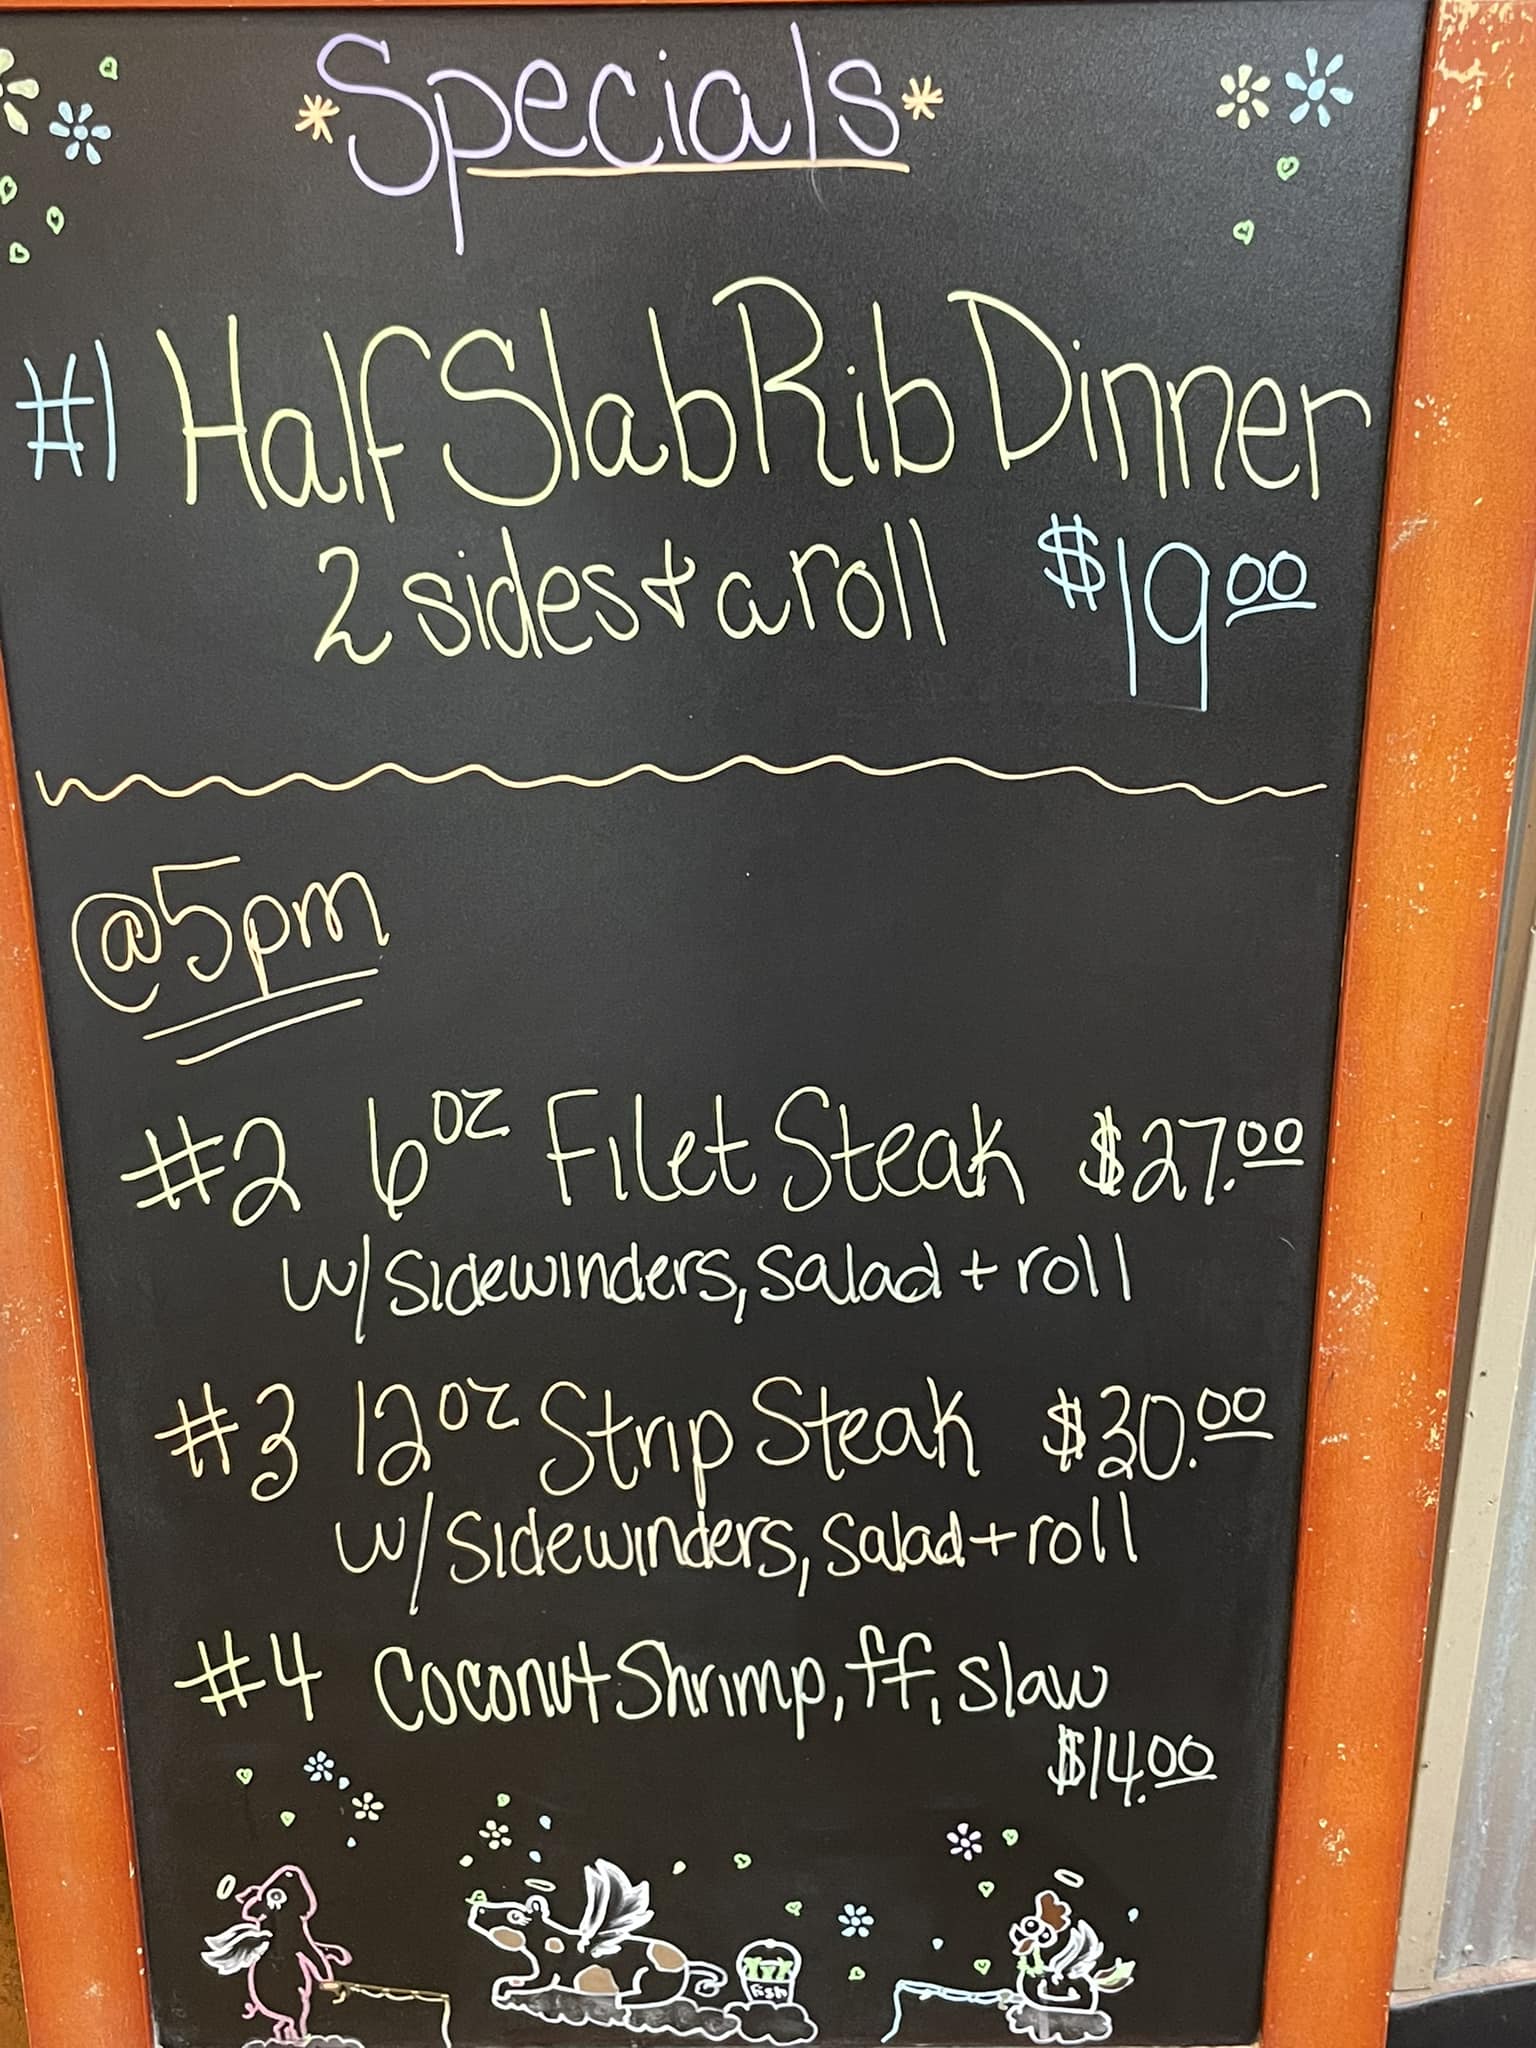 *Specials*
#1 Half Slab Rib Dinner
2 sides & a roll $19.00
@5pm
#2 6oz Filet Steak $27.00
w/sidewinders, salad + roll
#3 12oz Strip Steak $30.00
w/sidewinders, salad + roll
#4 Coconut Shrimp, ff, slaw
$14.00
Fish